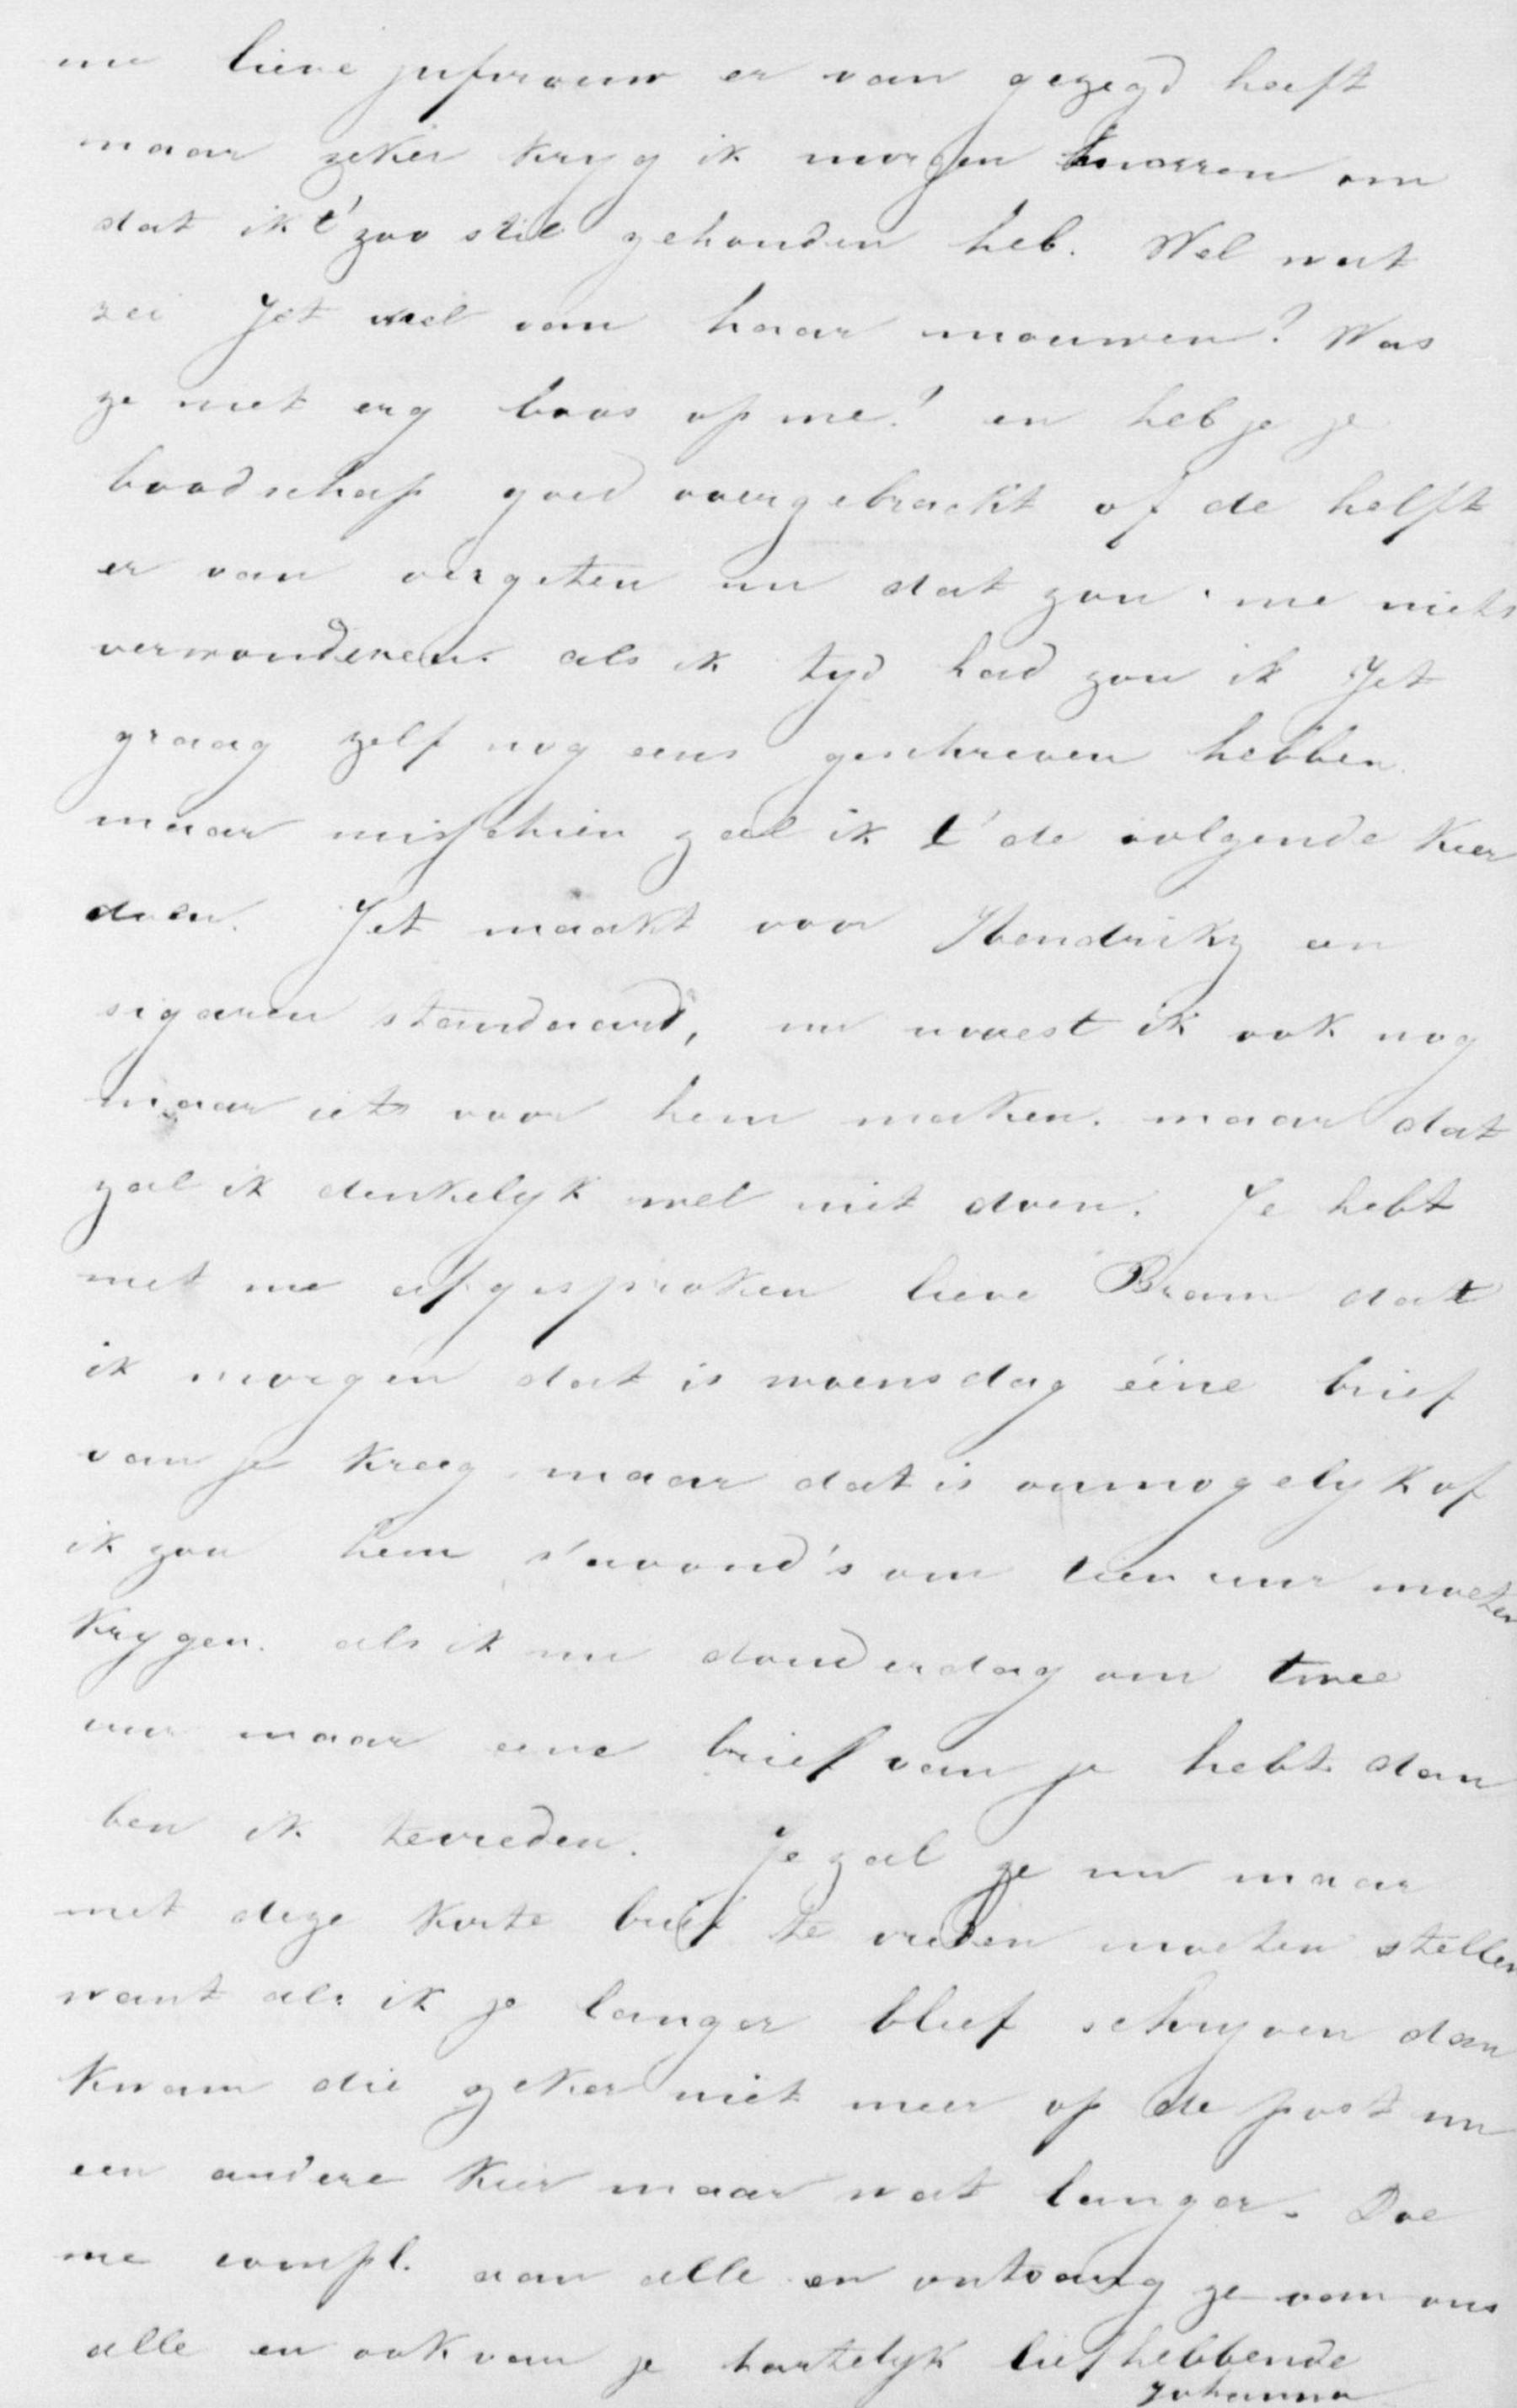 me lieve jufvrouw er van gezegd heeft
maar zeker kryg ik morgen knorren om
dat ik t' zoo stil gehouden heb. Wel wat
zei Jet wel van haar mouwen? Was
ze niet erg boos op me? en heb je je
boodschap goed overgebracht of de helft
er van vergeten nu dat zou me niets
verwonderen. als ik tyd had zou ik Jet
graag zelf nog eens geschreven hebben.
maar misschien zal ik t' de volgende keer
doen. Jet maakt voor Hendrikz een
sigaren standaard, nu moest ik ook nog
maar iets voor hem maken. maar dat
zal ik denkelyk wel niet doen. Je hebt
met me afgesproken lieve Bram dat
ik morgen dat is woensdag eene brief
van je kreeg maar dat is onmogelyk of
ik zou hem s'avond's om tien uur moeten
krygen. als ik nu donderdag om twee
uur maar eene brief van je hebt dan
ben ik tevreden. Je zal je nu maar
met deze korte brief te vreden moeten stellen
want als ik je langer bleef schryven dan
kwam die zeker niet meer op de post nu
een andere keer maar wat langer. Doe
me compl. aan alle en ontvang ze van ons
alle en ook van je hartelyk liefhebbende
Johanna